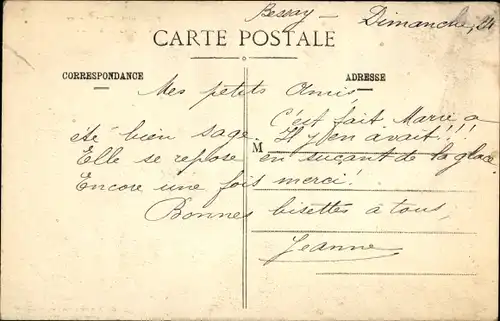 Bessay - Dimanche, 24
CARTE POSTALE
CORRESPONDANCE
ADRESSE
Mes petits Amis,
C'est fait Marie a
été bien sage. Il y en avait!!!
M
Elle se repose en suçant de la glace
Encore une fois merci!
Bonnes bisettes à tous,
Jeanne